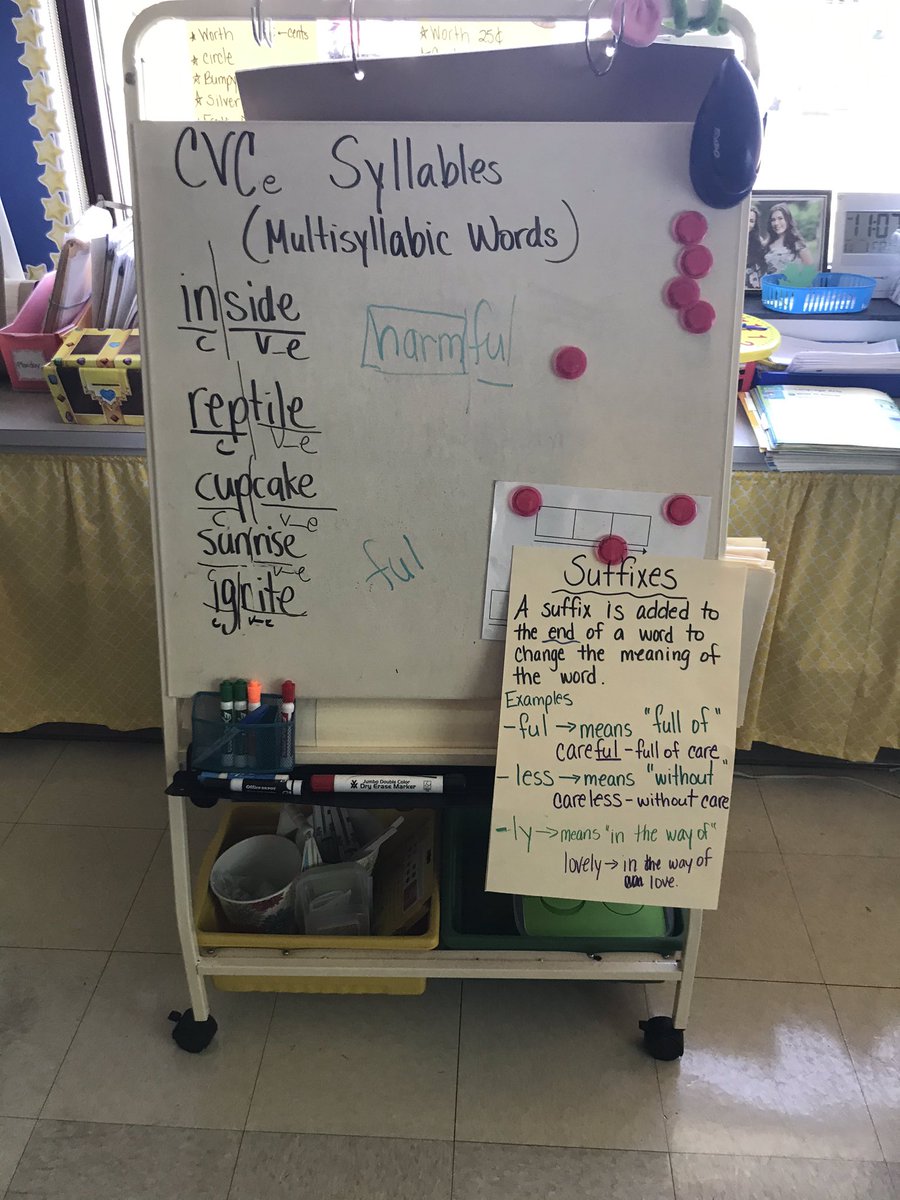 Worth
cents
circle
Bumpy
Silver
Worth 25¢
CVCe Syllables
(Multisyllabic Words)
inside
c v-e
harmful
reptile
c v-e
cupcake
c v-e
sunrise
c v-e
ful
ignite
c v-e
Suffixes
A suffix is added to
the end of a word to
change the meaning of
the word.
Examples
-ful → means "full of"
careful - full of care
-less → means "without"
careless - without care
-ly → means "in the way of"
lovely → in the way of
love.
Office DEPOT
Jumbo Double Color
Dry Erase Marker
11:07